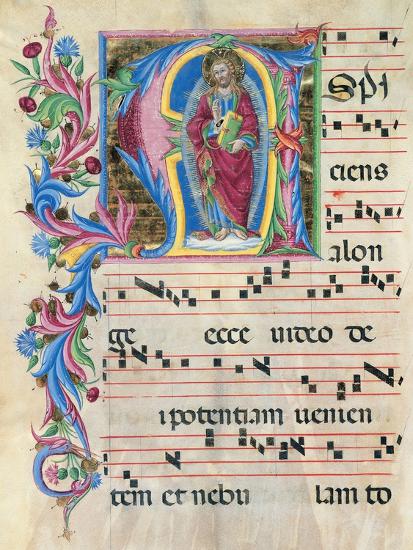 Aspi
ciens
alon
ge ecce uideo de
ipotentiam uenien
tem et nebu lam to